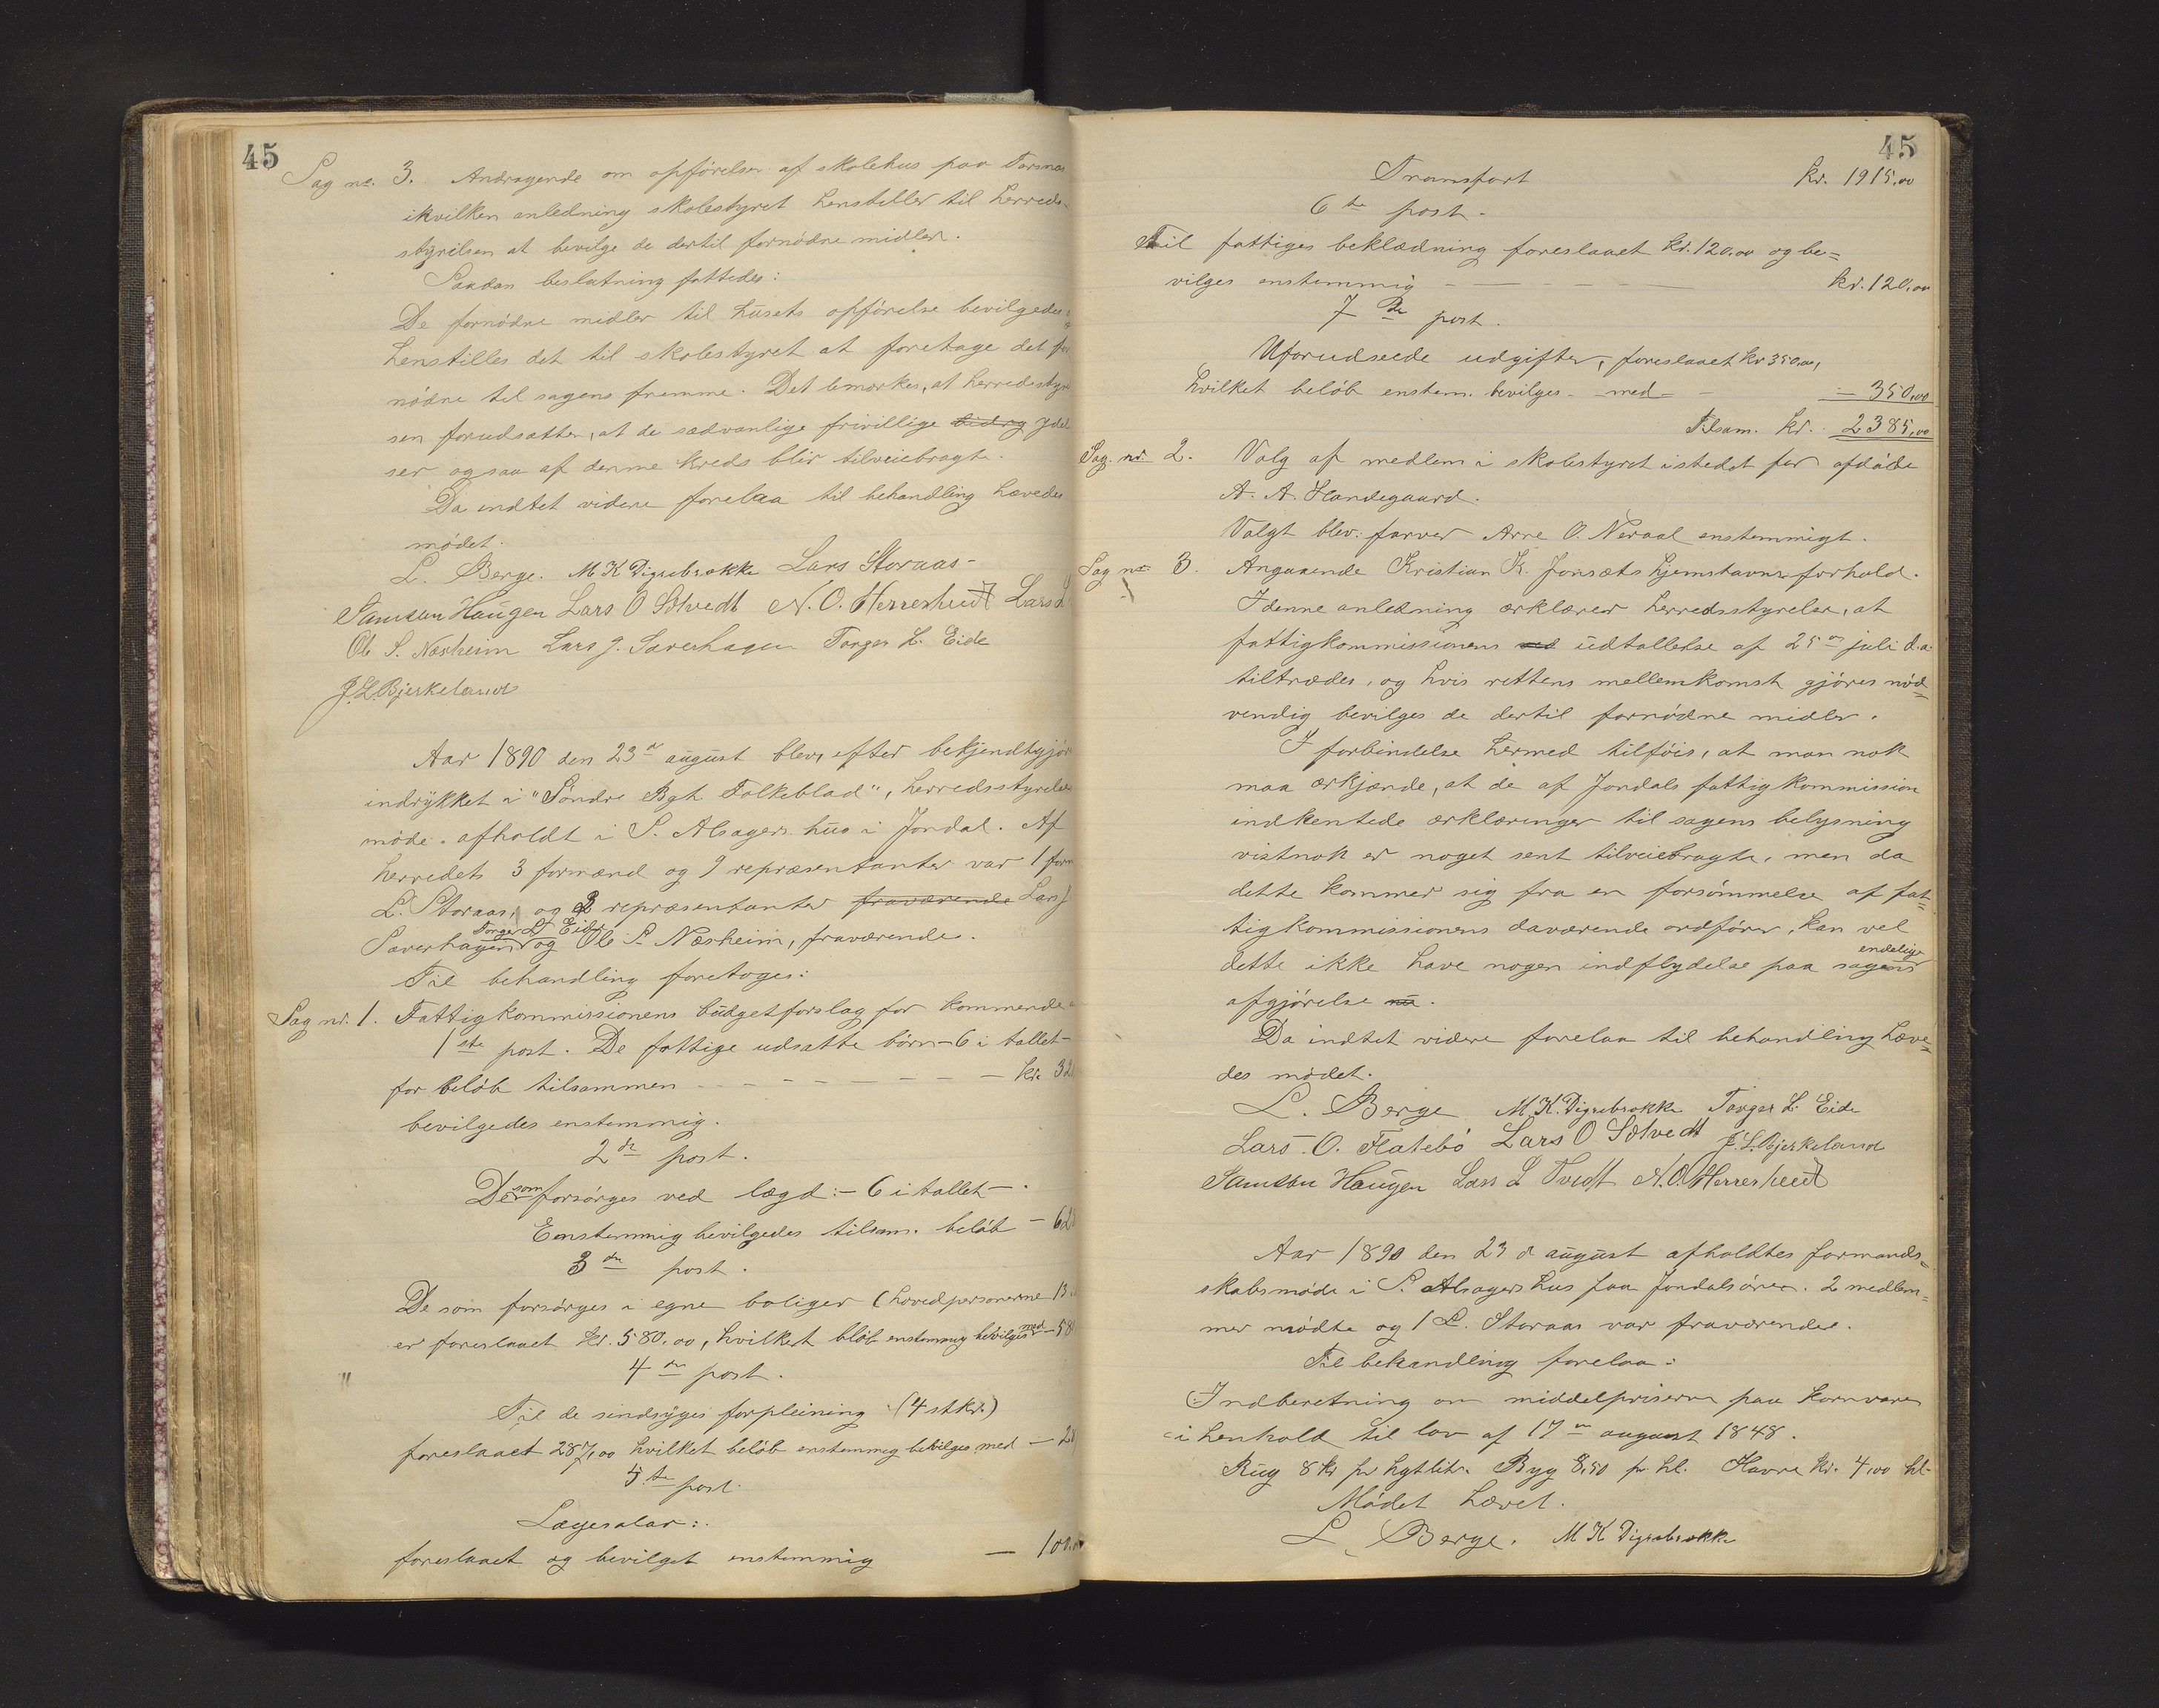 45
Sag no. 3. Andragende om opførelse af skolehus paa Torsnes
ihvilken anledning skolestyret henstiller til herreds-
styrelsen at bevilge de dertil fornødne midler.
Saadan beslutning fattedes:
De fornødne midler til husets opførelse bevilgedes
henstilles det til skolestyret at foretage det for
nødne til sagens fremme. Det bemerkes, at herredsstyrel
sen forudsætter, at de sædvanlige frivillige bidrag ydel
ser ogsaa af denne kreds blir tilveiebragte.
Da indtet videre forelaa til behandling hævedes
mødet.
L. Berge. M K Digrebrække Lars Storaas-
Samson Haugen Lars O Solvedt N. O. Herreshed Lars L
Ole S. Næsheim Lars J. Saverhagen Torger L. Eide
J. L. Bjerkeland
Aar 1890 den 23de august blev, efter bekjendtgjør
indrykket i "Søndre Bgh Folkeblad", herredsstyrelses
møde afholdt i S. Alsagers hus i Jondal. Af
herredets 3 formænd og 9 repræsentanter var 1 form
L. Storaas, og 3 repræsentanter fraværende Lars J
Torger L Eide
Saverhagen og Ole S. Næsheim, fraværende.
Til behandling foretoges:
Sag nr. 1. Fattigkommissionens budgetforslag for kommende
1ste post. De fattige udsatte børn - 6 i tallet -
for beløb tilsammen - - - - - - - - kr. 32
bevilgedes enstemmig.
2den post.
De som forsørges ved lægd: - 6 i tallet -.
Enstemmig bevilgedes tilsam. beløb - 62
3die post.
De som forsørges i egne boliger (hovedpersonerne 13
er foreslaaet kr. 580.00, hvilket bløb enstemmig bevilges med - 58
4de post.
Til de sindsyges forpleining (4 stkr.)
foreslaaet 287,00 hvilket beløb enstemmig bevilges med - 28
5te post.
Lægesalær:
foreslaaet og bevilget enstemmig - 100.00
45
Transport kr. 1915,00
6te post.
Til fattiges beklædning foreslaaet kr. 120,00 og be=
vilges enstemmig - - - - - kr. 120,00
7de post.
Uforudseede udgifter, foreslaaet kr 350,00,
hvilket beløb enstem. bevilges - med - - - 350,00
Tilsam. kr. 2385,00
Sag. nr 2. Valg af medlem i skolestyret istedet for afdøde
A. A. Handegaard.
Valgt blev: farver Arne O. Neraal enstemmigt.
Sag no 3. Angaaende Kristian K. Jonsæts hjemstavnsforhold.
I denne anledning erklærer herredsstyrelsen, at
fattigkommissionens ved udtallelse af 25de juli d.a.
tiltrædes, og hvis rettens mellemkomst gjøres nød=
vendig bevilges de dertil fornødne midler.
I forbindelse hermed tilføies, at man nok
maa erkjende, at de af Jondals fattigkommission
indhentede erklæringer til sagens belysning
vistnok er noget sent tilveiebragte, men da
dette kommer sig fra en forsømmelse af fat=
tigkommissionens daværende ordfører, kan vel
endelige
dette ikke have nogen indflydelse paa sagens
afgjørelse nu.
Da indtet videre forelaa til behandling hæve=
des mødet.
L. Berge M. K. Digrebrække Torger L. Eide
Lars O. Flatebø Lars O Solvedt J. L. Bjerkeland
Samson Haugen Lars L Tvedt N. O. Herreshed
Aar 1890 den 23de august afholdtes formands=
skabsmøde i S. Alsagers hus paa Jondalsøren. 2 medlem=
mer mødte og 1 L. Storaas var fraværende.
Til behandling forelaa:
Indberetning om middelpriserne paa kornvarer
i henhold til lov af 17de august 1848.
Rug 8 kr pr hgtlitr. Byg 8,50 pr. hl. Havre kr. 4,00 hl.
Mødet hævet.
L. Berge. M K Digrebrække